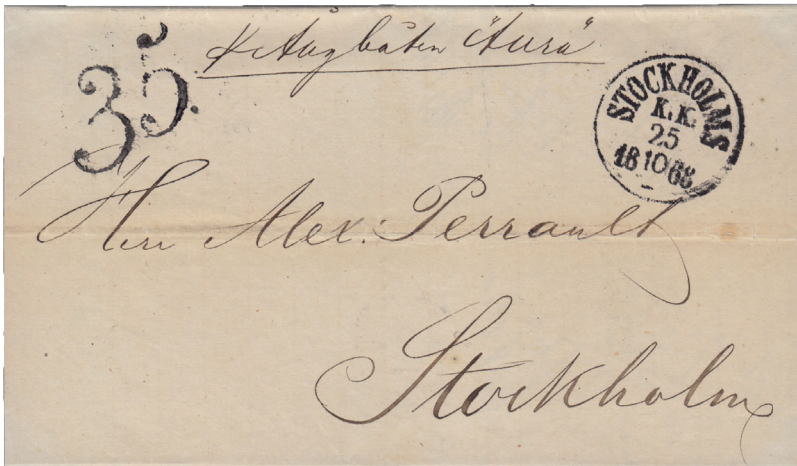 35.
Ångbåten "Aura"
STOCKHOLMS
K.K.
25
18 10 68
Herr Alex: Perrault
Stockholm